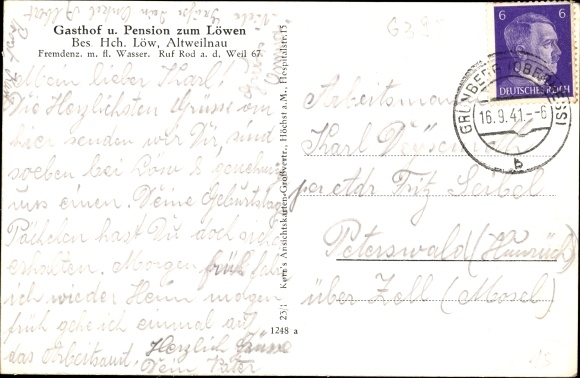 Gasthof u. Pension zum Löwen
Bes Hch. Löw, Altweilnau
Fremdenz. m. fl. Wasser. Ruf Rod a. d. Weil 67
Mein lieber Karl!
Die Herzlichsten Grüsse von
hier senden wir Dir, sind
soeben bei Löw u. genehmigen
uns einen. Deine Geburtstags
Päckchen hast Du doch sicher
erhalten. Morgen früh fahre
ich wieder Heim
früh gehe ich einmal auf
das Arbeitsamt. Herzlich Grüsse
Dein Vater
Kern's Ansichtskarten-Großvertr., Höchst a.M., Hospitalstr.15
23/1
1248 a
6 6
DEUTSCHES REICH
GRÜNBERG (OBERHESS)
16.9.41.-6
b
Arbeitsmann
Karl
per adr Fritz Seibel
Peterswald (Hunsrück)
über Zell (Mosel)